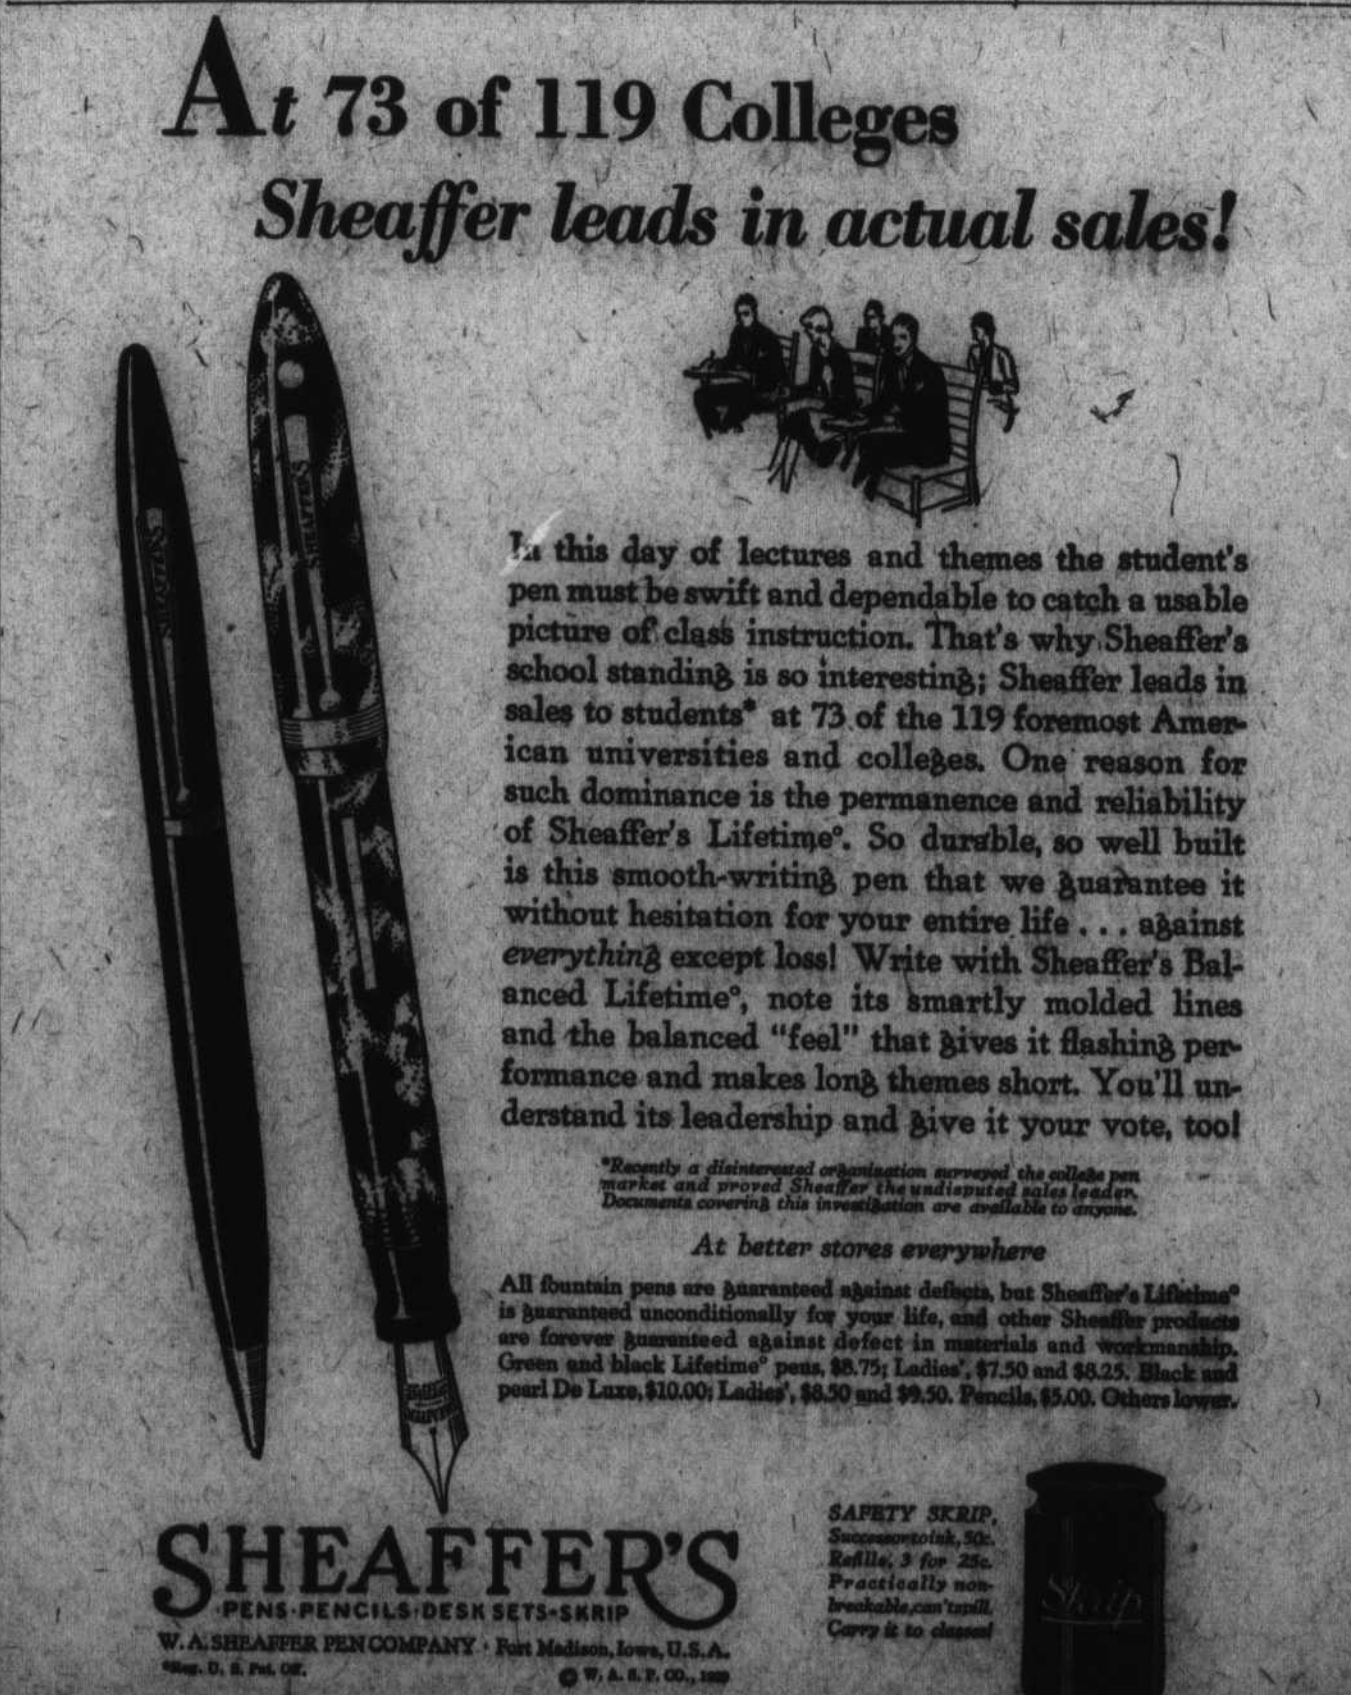 At 73 of 119 Colleges
Sheaffer leads in actual sales!
SHEAFFER'S
SHEAFFER'S
In this day of lectures and themes the student's
pen must be swift and dependable to catch a usable
picture of class instruction. That's why Sheaffer's
school standing is so interesting; Sheaffer leads in
sales to students* at 73 of the 119 foremost Amer-
ican universities and colleges. One reason for
such dominance is the permanence and reliability
of Sheaffer's Lifetime°. So durable, so well built
is this smooth-writing pen that we guarantee it
without hesitation for your entire life . . . against
everything except loss! Write with Sheaffer's Bal-
anced Lifetime°, note its smartly molded lines
and the balanced "feel" that gives it flashing per-
formance and makes long themes short. You'll un-
derstand its leadership and give it your vote, too!
*Recently a disinterested organization surveyed the college pen
market and proved Sheaffer the undisputed sales leader.
Documents covering this investigation are available to anyone.
At better stores everywhere
All fountain pens are guaranteed against defects, but Sheaffer's Lifetime°
is guaranteed unconditionally for your life, and other Sheaffer products
are forever guaranteed against defect in materials and workmanship.
Green and black Lifetime° pens, $8.75; Ladies', $7.50 and $8.25. Black and
pearl De Luxe, $10.00; Ladies', $8.50 and $9.50. Pencils, $5.00. Others lower.
SHEAFFER'S
PENS·PENCILS·DESK SETS·SKRIP
W. A. SHEAFFER PEN COMPANY · Fort Madison, Iowa, U.S.A.
*Reg. U. S. Pat. Off.
© W. A. S. P. CO., 1929
SAFETY SKRIP,
Successor to ink, 50c.
Refills, 3 for 25c.
Practically non-
breakable, can't spill.
Carry it to classes!
Skrip